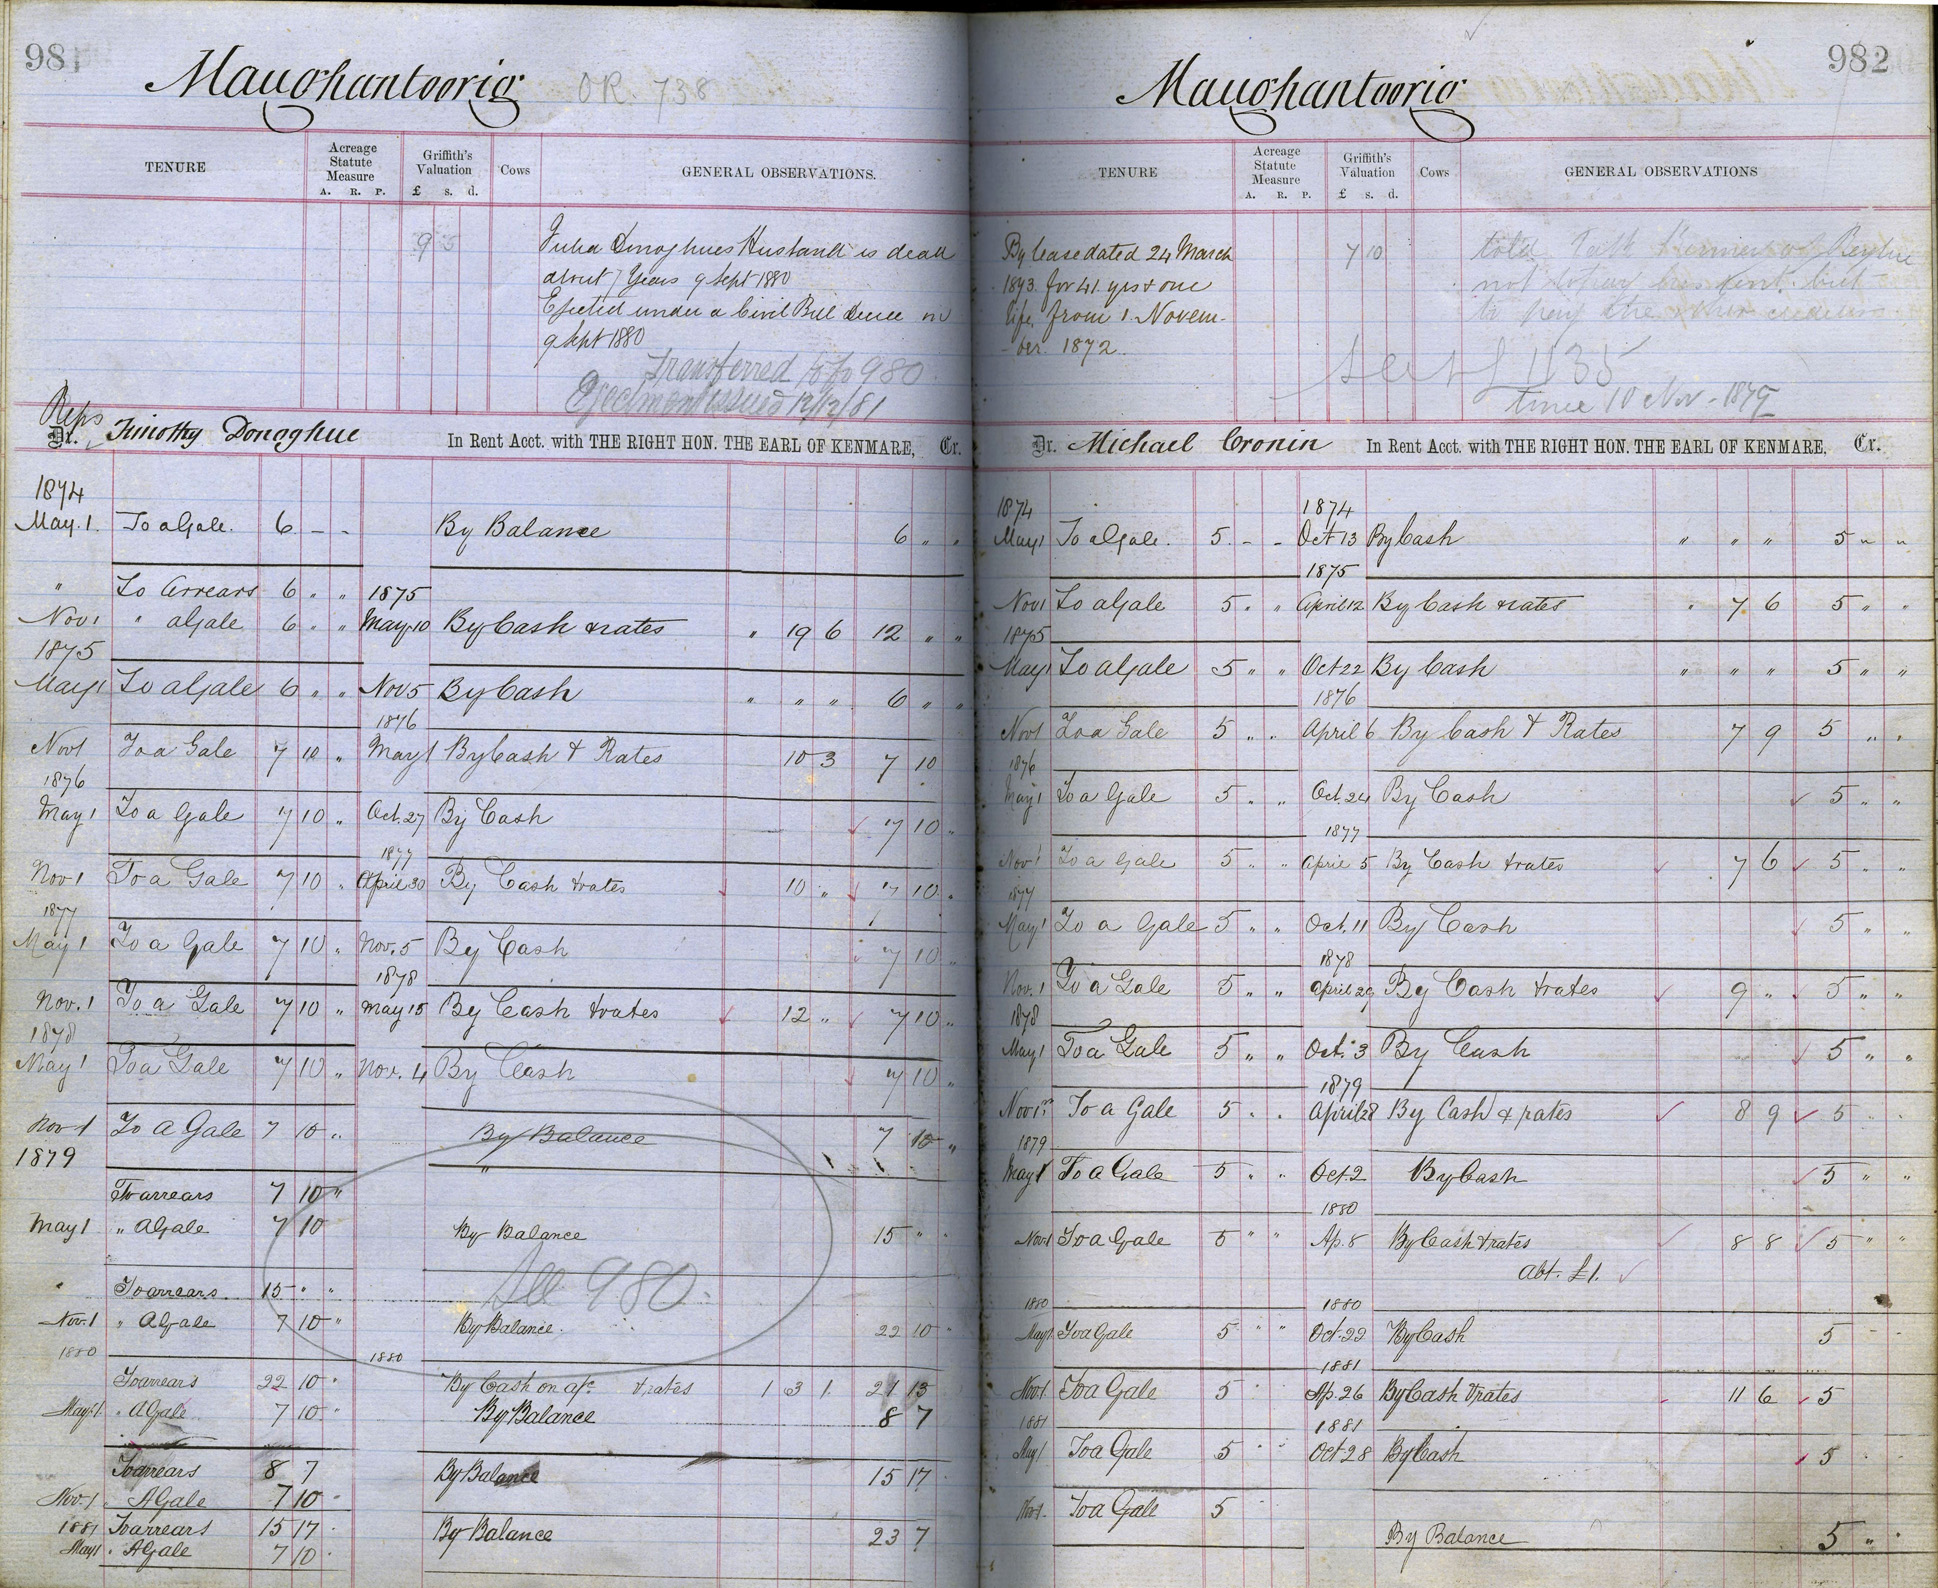 981
Maughantoorig OR. 738
TENURE
Acreage Statute Measure
A. R. P.
Griffith's Valuation
£ s. d.
Cows
GENERAL OBSERVATIONS.
9 5
Julia Donoghues Husband is dead
about 7 Years 9 Sept 1880
Ejected under a Civil Bill decree on
9 Sept 1880
Transferred to fo 980
Ejectment issued 12/12/81
Reps
Dr. Timothy Donoghue In Rent Acct. with THE RIGHT HON. THE EARL OF KENMARE, Cr.
1874
May. 1. To a Gale. 6 - - By Balance 6 " "
" To Arrears 6 " " 1875
Nov 1 " a Gale 6 " " May 10 By Cash & rates " 19 6 12 " "
1875
May 1 To a Gale 6 " " Nov 5 By Cash " " " 6 " "
1876
Nov 1 To a Gale 7 10 " May 1 By Cash & Rates 10 3 7 10
1876
May 1 To a Gale 7 10 " Oct. 27 By Cash 7 10 "
1877
Nov 1 To a Gale 7 10 " April 30 By Cash & rates 10 " 7 10 "
1877
May 1 To a Gale 7 10 " Nov. 5 By Cash 7 10 "
1878
Nov. 1 To a Gale 7 10 " May 15 By Cash & rates 12 " 7 10 "
1878
May 1 To a Gale 7 10 " Nov. 4 By Cash 7 10 "
Nov 1 To a Gale 7 10 " By Balance 7 10 "
1879
To arrears 7 10 "
May 1 " A Gale 7 10 By Balance 15 " "
See 980
" To arrears. 15 " "
Nov. 1 " A Gale 7 10 " By Balance. 22 10 "
1880 1880
To arrears 22 10 " By Cash on a/c & rates 1 3 1 21 13
May 1 " A Gale 7 10 " By Balance 8 7
To arrears 8 7 By Balance 15 17
Nov. 1 A Gale 7 10 "
1881 To arrears 15 17 By Balance 23 7
May 1 " A Gale 7 10
982
Maughantoorig
TENURE
Acreage Statute Measure
A. R. P.
Griffith's Valuation
£ s. d.
Cows
GENERAL OBSERVATIONS
By lease dated 24 March
1873. for 41 yrs & one
life. from 1. Novem-
-ber. 1872.
7 10
told
not to pay his rent. but
to pay the other
1135
since 10 Nov - 1879
Dr. Michael Cronin In Rent Acct. with THE RIGHT HON. THE EARL OF KENMARE, Cr.
1874 1874
May 1 To a Gale. 5 - - Oct 13 By Cash " " " 5 " "
1875
Nov 1 To a Gale 5 " " April 12 By Cash & rates " 7 6 5 " "
1875
May 1 To a Gale 5 " " Oct 22 By Cash " " " 5 " "
1876
Nov 1 To a Gale 5 " " April 6 By Cash & Rates 7 9 5 " "
1876
May 1 To a Gale 5 " " Oct. 24 By Cash 5 " "
1877
Nov 1 To a Gale 5 " " April 5 By Cash & rates 7 6 5 " "
1877
May 1 To a Gale 5 " " Oct. 11 By Cash 5 " "
1878
Nov. 1 To a Gale 5 " " April 29 By Cash & rates 9 " 5 " "
1878
May 1 To a Gale 5 " " Oct. 3 By Cash 5 " "
1879
Nov 1 To a Gale 5 " " April 28 By Cash & rates 8 9 5 " "
1879
May 1 To a Gale 5 " " Oct. 2 By Cash 5 " "
1880
Nov. 1 To a Gale 5 " " Ap. 8 By Cash & rates 8 8 5 " "
Abt. £1.
1880 1880
May 1 To a Gale 5 " " Oct. 22 By Cash 5 " "
1881
Nov 1 To a Gale 5 " Ap. 26 By Cash & rates 11 6 5
1881 1881
May 1 To a Gale 5 " " Oct 28 By Cash 5
Nov 1 To a Gale 5
By Balance 5 " "